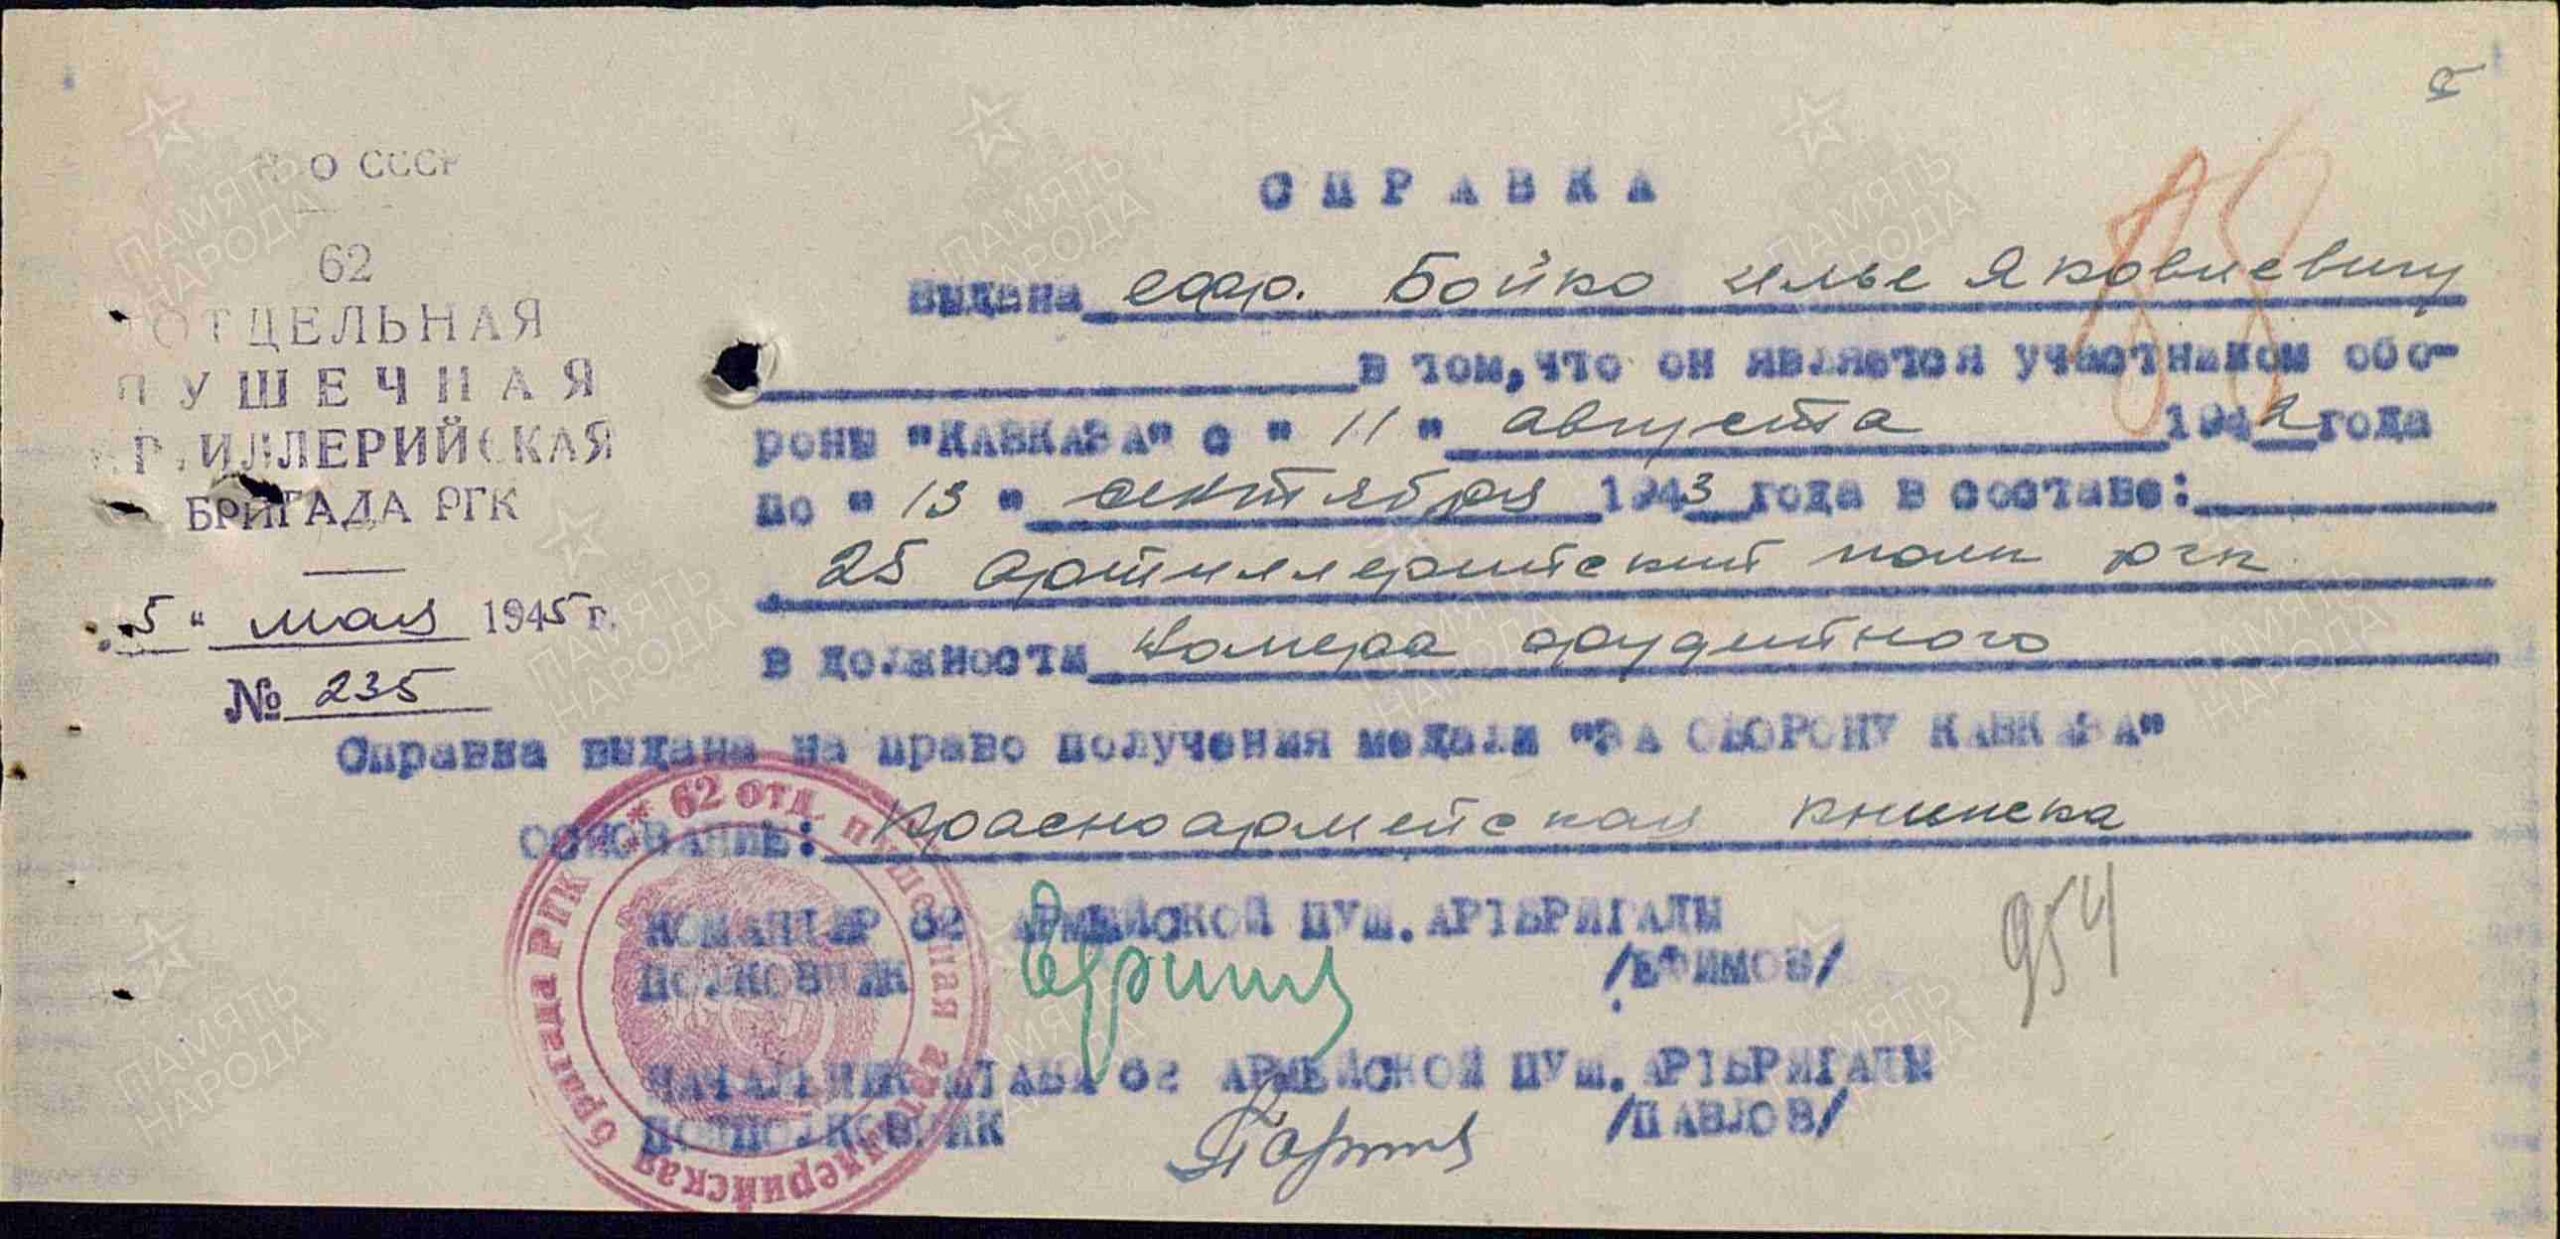 О СССР
62
ОТДЕЛЬНАЯ
ПУШЕЧНАЯ
АРТИЛЛЕРИЙСКАЯ
БРИГАДА РГК
"5" мая 1945 г.
№ 235
СПРАВКА
Выдана ефр. Бойко Илье Яковлевичу
в том, что он является участником обо-
роны "КАВКАЗА" с "11" августа 1942 года
по "13" сентября 1943 года в составе:
25 артиллерийский полк ргк
в должности номера орудийного
Справка выдана на право получения медали "ЗА ОБОРОНУ КАВКАЗА"
ОСНОВАНИЕ: Красноармейская книжка
КОМАНДИР 62 АРМЕЙСКОЙ ПУШ. АРТБРИГАДЫ
ПОЛКОВНИК /ЕФИМОВ/
НАЧАЛЬНИК ШТАБА 62 АРМЕЙСКОЙ ПУШ. АРТБРИГАДЫ
ПОДПОЛКОВНИК /ПАВЛОВ/
954
88
* 62 отд. пушечная артиллерийская бригада РГК *
ПАМЯТЬ НАРОДА